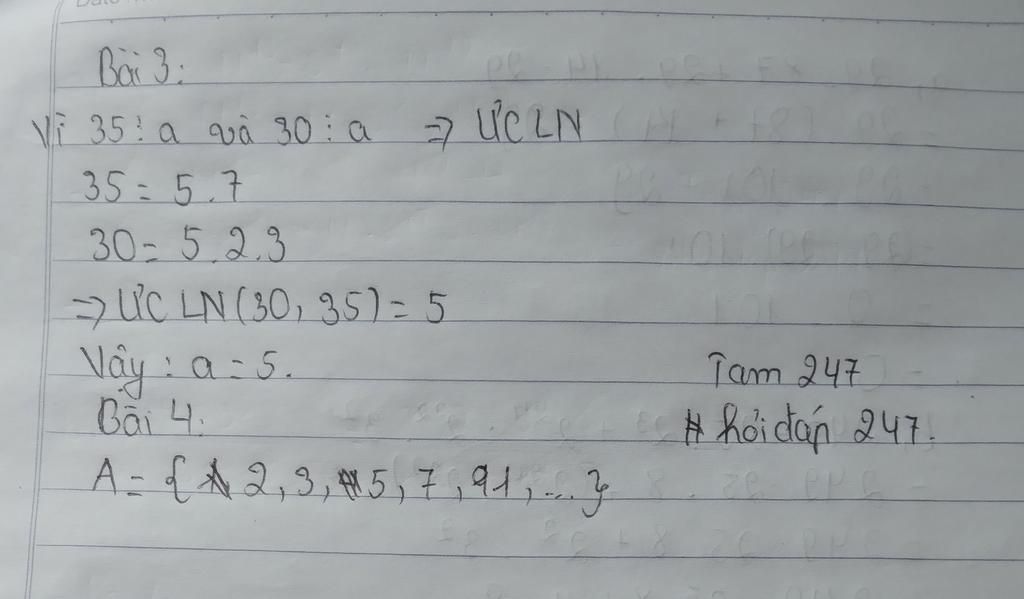 Bài 3:
Vì 35 ⋮ a và 30 ⋮ a => ƯCLN
35 = 5.7
30 = 5.2.3
=> ƯCLN(30, 35) = 5
Vậy : a = 5.
Tam 247
Bài 4:
# hỏi đáp 247.
A = { 2, 3, 5, 7, 91, ... }